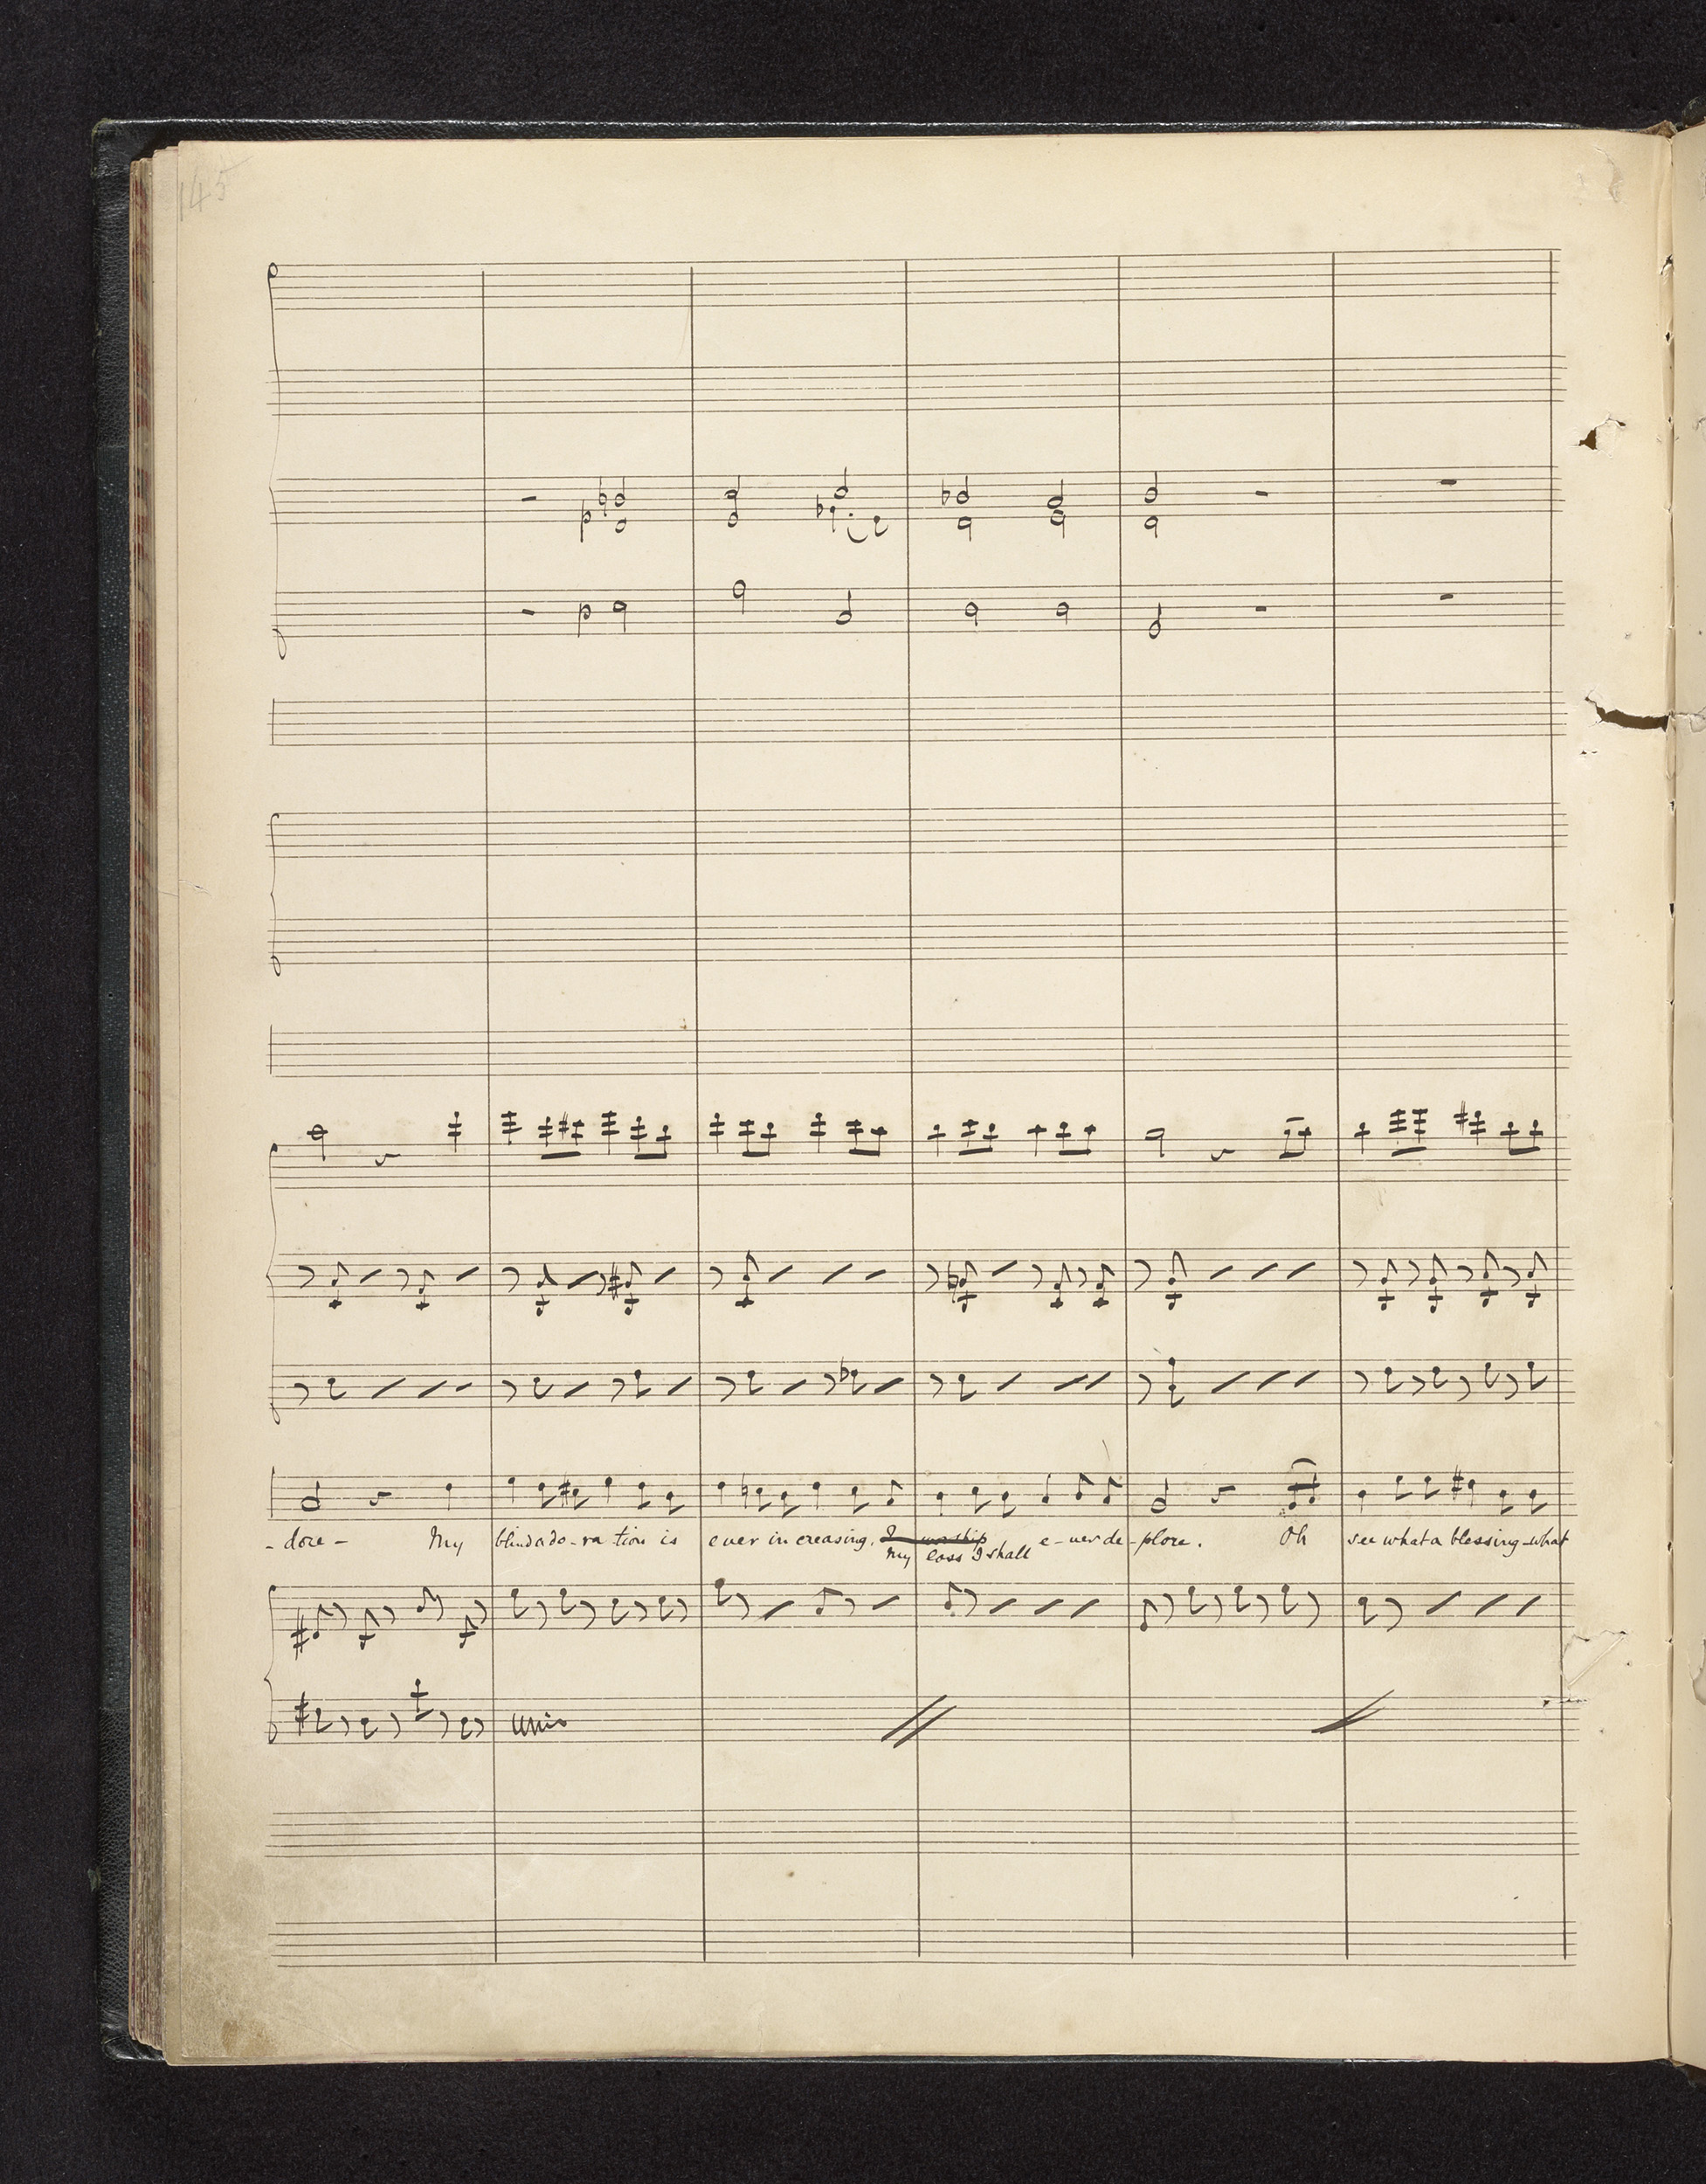 145
p
p
- dore - My blind ado - ra tion is ever in creasing. I worship e - ver de - plore. Oh see what a blessing - what
My loss I shall
unis